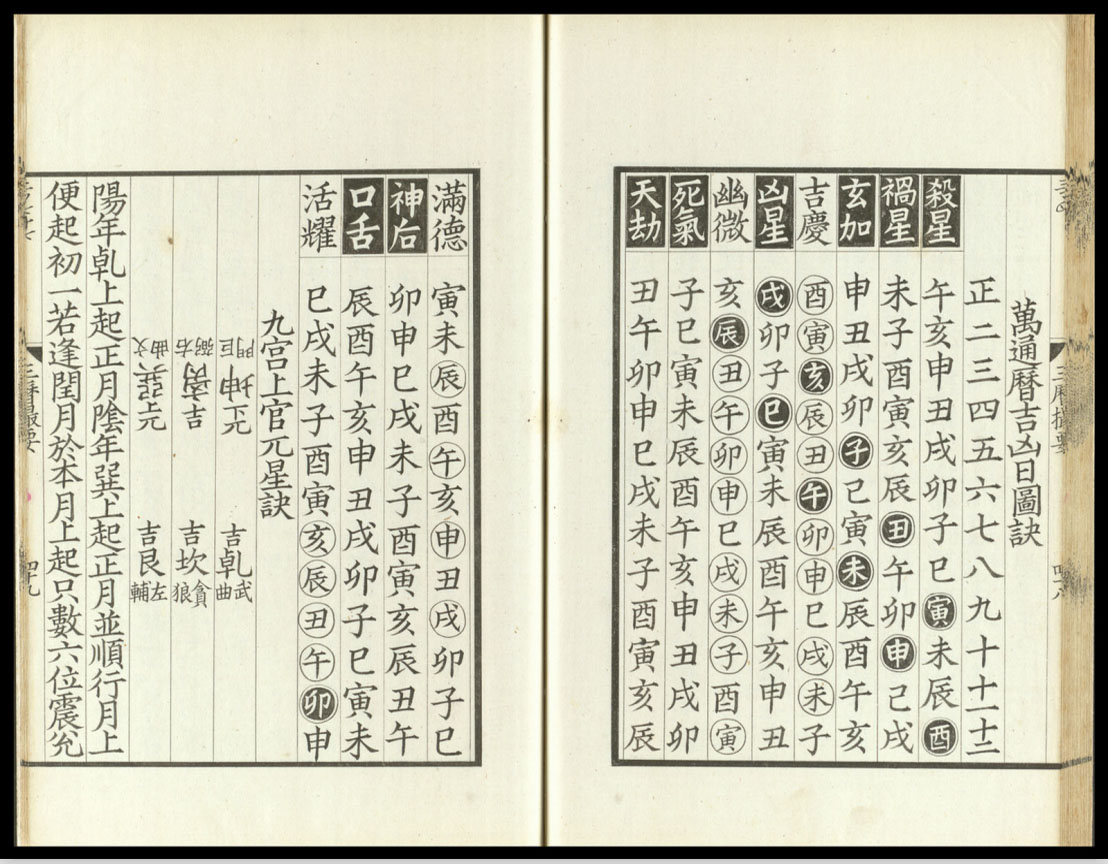 萬通曆吉凶日圖訣
正二三四五六七八九十十一十二
殺星 午亥申丑戌卯子巳寅未辰酉
禍星 未子酉寅亥辰丑午卯申己戌
玄加 申丑戌卯子己寅未辰酉午亥
吉慶 酉寅亥辰丑午卯申巳戌未子
凶星 戌卯子巳寅未辰酉午亥申丑
幽微 亥辰丑午卯申巳戌未子酉寅
死氣 子巳寅未辰酉午亥申丑戌卯
天劫 丑午卯申巳戌未子酉寅亥辰
滿德 寅未辰酉午亥申丑戌卯子巳
神后 卯申巳戌未子酉寅亥辰丑午
口舌 辰酉午亥申丑戌卯子巳寅未
活耀 巳戌未子酉寅亥辰丑午卯申
九宫上官兀星訣
巨門 坤 兀 吉 乹 武曲
右弼 离 吉 吉 坎 貪狼
文曲 巽 兀 吉 艮 左輔
陽年乹上起正月陰年巽上起正月並順行月上
便起初一若逢閏月於本月上起只數六位震兊